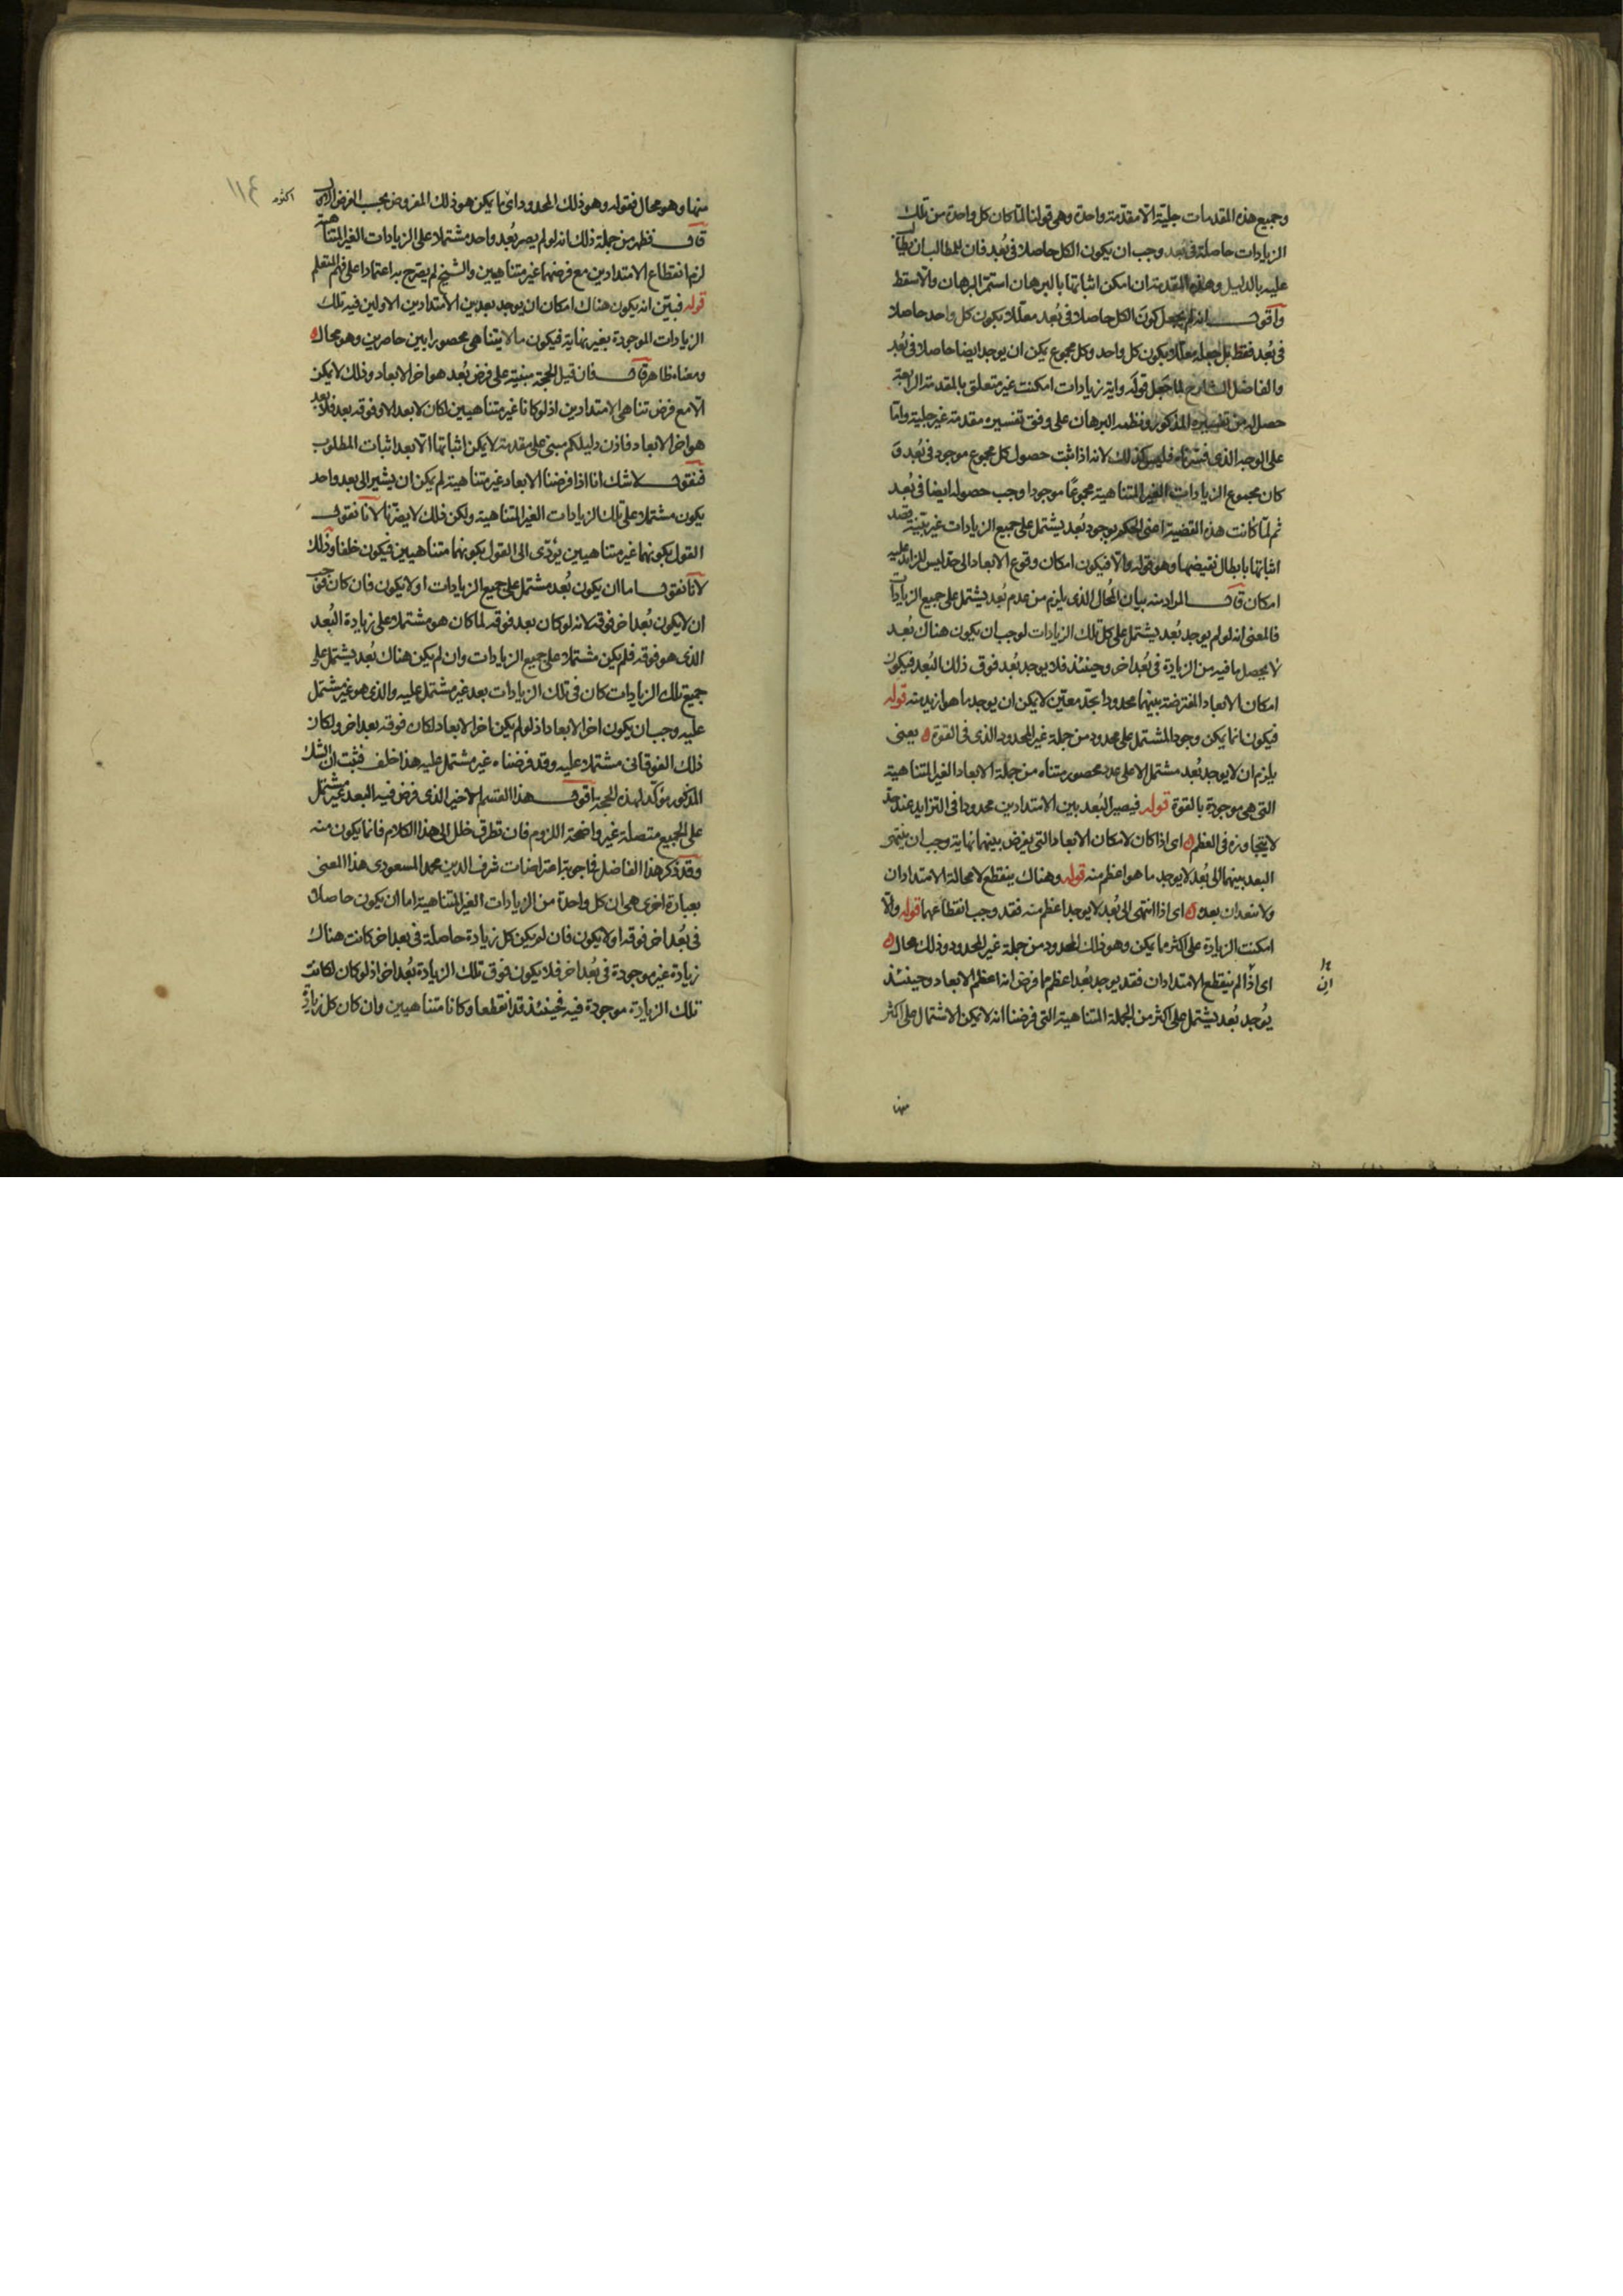 وجميع هذه المقدمات جلية الا مقدمة واحدة وهى قولنا لما كان كل واحدة من تلك
الزيادات حاصلة فى بعد وجب ان يكون الكل حاصلا فى بُعد فان للمطالب ان يطالب
عليه بالدليل وهذه المقدمة ان امكن اثباتها بالبرهان استمر البرهان والا سقط
واقول انه لم يجعل كون الكل حاصلا فى بُعد معللا بكون كل واحد حاصلا
فى بُعد فقط بل جعله معللا بكون كل واحد وكل مجموع يمكن ان يوجد ايضا حاصلا فى بُعد
والفاضل الشارح لما جعل قوله واية زيادات امكنت غير متعلق بالمقدمة الرابعة
حصل له من تفسيره المذكور ونظمه البرهان على وفق تفسيره مقدمة غير جلية واما
على الوجه الذى فسرناه فليس كذلك لانه اذا ثبت حصول كل مجموع موجود فى بُعد و
كان مجموع الزيادات الغير المتناهية مجموعًا موجودا وجب حصوله ايضا فى بُعد
ثم لما كانت هذه القضية اعنى الحكم بوجود بُعد يشتمل على جميع الزيادات غير بينة قصد
اثباتها بابطال نقيضها وهو قوله والا فيكون امكان وقوع الابعاد الى حد ليس للزائد عليه
امكان قال المراد منه بيان المحال الذى يلزم من عدم بُعد يشتمل على جميع الزيادات
فالمعنى انه لو لم يوجد بُعد يشتمل على كل تلك الزيادات لوجب ان يكون هناك بُعد
لا يحصل ما فيه من الزيادة فى بُعد اخر وحينئذ فلا يوجد بُعد فوق ذلك البُعد فيكون
امكان الابعاد المفترضة بينهما محدودا بحد معين لا يمكن ان يوجد ما هو ازيد منه قوله
فيكون انما يمكن وجود المشتمل على محدود من جملة غير المحدود الذى فى القوة ه يعنى
يلزم ان لا يوجد بُعد مشتمل الا على عدد محصور متناه من جملة الابعاد الغير المتناهية
التى هى موجودة بالقوة قوله فيصير البُعد بين الامتدادين محدودا فى التزايد عند حد
لا يتجاوزه فى العظم ه اى اذا كان لامكان الابعاد التى يفرض بينهما نهاية وجب ان ينتهى
البعد بينهما الى بُعد لا يوجد ما هو اعظم منه قوله وهناك ينقطع لا محالة الامتدادان
ولا ينفدان بعده ه اى اذا انتهى الى بُعد لا يوجد اعظم منه فقد وجب انقطاعهما قوله والا
امكنت الزيادة على اكثر ما يمكن وهو ذلك المحدود من جملة غير المحدود وذلك محال ه
اى اذا لم ينقطع الامتدادان فقد يوجد بُعد اعظم مما فرض انه اعظم الابعاد وحينئذ
يُوجد بُعد يشتمل على اكثر من الجملة المتناهية التى فرضنا انه لا يمكن الاشتمال على اكثر
منها
منها وهو محال فقوله وهو ذلك المحدود اى ما يمكن هو ذلك المفروض بحسب الفرض الاول
قال فظهر من جملة ذلك انه لو لم يصر بُعد واحد مشتملا على الزيادات الغير المتناهية
لزم انقطاع الامتدادين مع فرضهما غير متناهيين والشيخ لم يصرح به اعتمادا على فهم المتعلم
قوله فبين انه يكون هناك امكان ان يوجد بعد بين الامتدادين الاولين فيه تلك
الزيادات الموجودة بغير نهاية فيكون ما لا يتناهى محصورا بين حاصرين وهو محال ه
ومعناه ظاهر قال فان قيل الحجة مبنية على فرض بُعد هو اخر الابعاد وذلك لا يمكن
الا مع فرض تناهى الامتدادين اذ لو كانا غير متناهيين لكان لا بعد الا وفوقه بعد فلا بعد
هو اخر الابعاد فاذن دليلكم مبنى على مقدمة لا يمكن اثباتها الا بعد اثبات المطلوب
فنقول لا شك انا اذا فرضنا الابعاد غير متناهية لم يمكن ان يشير الى بعد واحد
يكون مشتملا على تلك الزيادات الغير المتناهية ولكن ذلك لا يضرنا لانا نقول
القول بكونهما غير متناهيين يؤدى الى القول بكونهما متناهيين فيكون خلفا وذلك
لانا نقول اما ان يكون بُعد مشتمل على جميع الزيادات او لا يكون فان كان وجب
ان لا يكون بُعد اخر فوقه لانه لو كان بعد فوقه لما كان هو مشتملا على زيادة البُعد
الذى هو فوقه فلم يكن مشتملا على جميع الزيادات وان لم يكن هناك بُعد يشتمل على
جميع تلك الزيادات كان فى تلك الزيادات بعد غير مشتمل عليه والذى هو غير مشتمل
عليه وجب ان يكون اخر الابعاد اذ لو لم يكن اخر الابعاد لكان فوقه بعد اخر ولكان
ذلك الفوقانى مشتملا عليه وقد فرضناه غير مشتمل عليه هذا خلف فثبت ان الشك
المذكور مؤكد لهذه الحجة اقول هذا القسم الاخير الذى فرض فيه البعد غير مشتمل
على الجميع متصلة غير واضحة اللزوم فان تطرق خلل الى هذا الكلام فانما يكون منه
وقد ذكر هذا الفاضل فى اجوبة اعتراضات شرف الدين محمد المسعودى هذا المعنى
بعبارة اخرى هى ان كل واحدة من الزيادات الغير المتناهية اما ان يكون حاصلا
فى بُعد اخر فوقه او لا يكون فان لم يكن كل زيادة حاصلة فى بعد اخر كانت هناك
زيادة غير موجودة فى بُعد اخر فلا يكون فوق تلك الزيادة بُعد اخر اذ لو كان لكانت
تلك الزيادة موجودة فيه فحينئذ قد انقطعا وكانا متناهيين وان كان كل زيادة